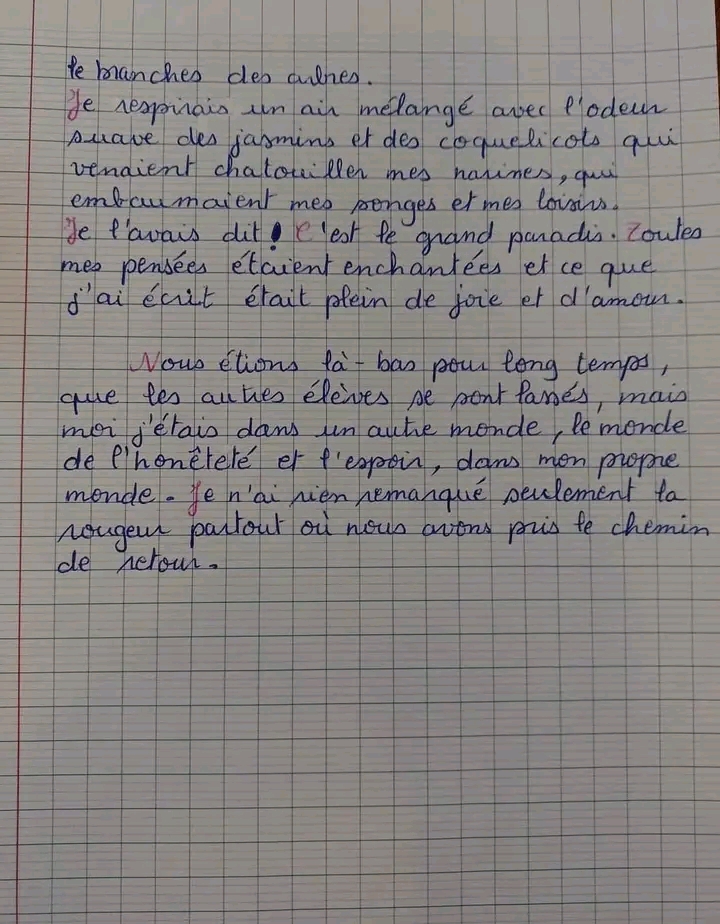 le branches des arbres.
Je respirais un air mélangé avec l'odeur
suave des jasmins et des coquelicots qui
venaient chatouiller mes narines, qui
embaumaient mes songes et mes loisirs.
Je l'avais dit ! C'est le grand paradis. Toutes
mes pensées étaient enchantées et ce que
j'ai écrit était plein de joie et d'amour.
Nous étions là-bas pour long temps,
que les autres élèves se sont lassés, mais
moi j'étais dans un autre monde, le monde
de l'honêteté et l'espoir, dans mon propre
monde. Je n'ai rien remarqué seulement la
rougeur partout où nous avons pris le chemin
de retour.